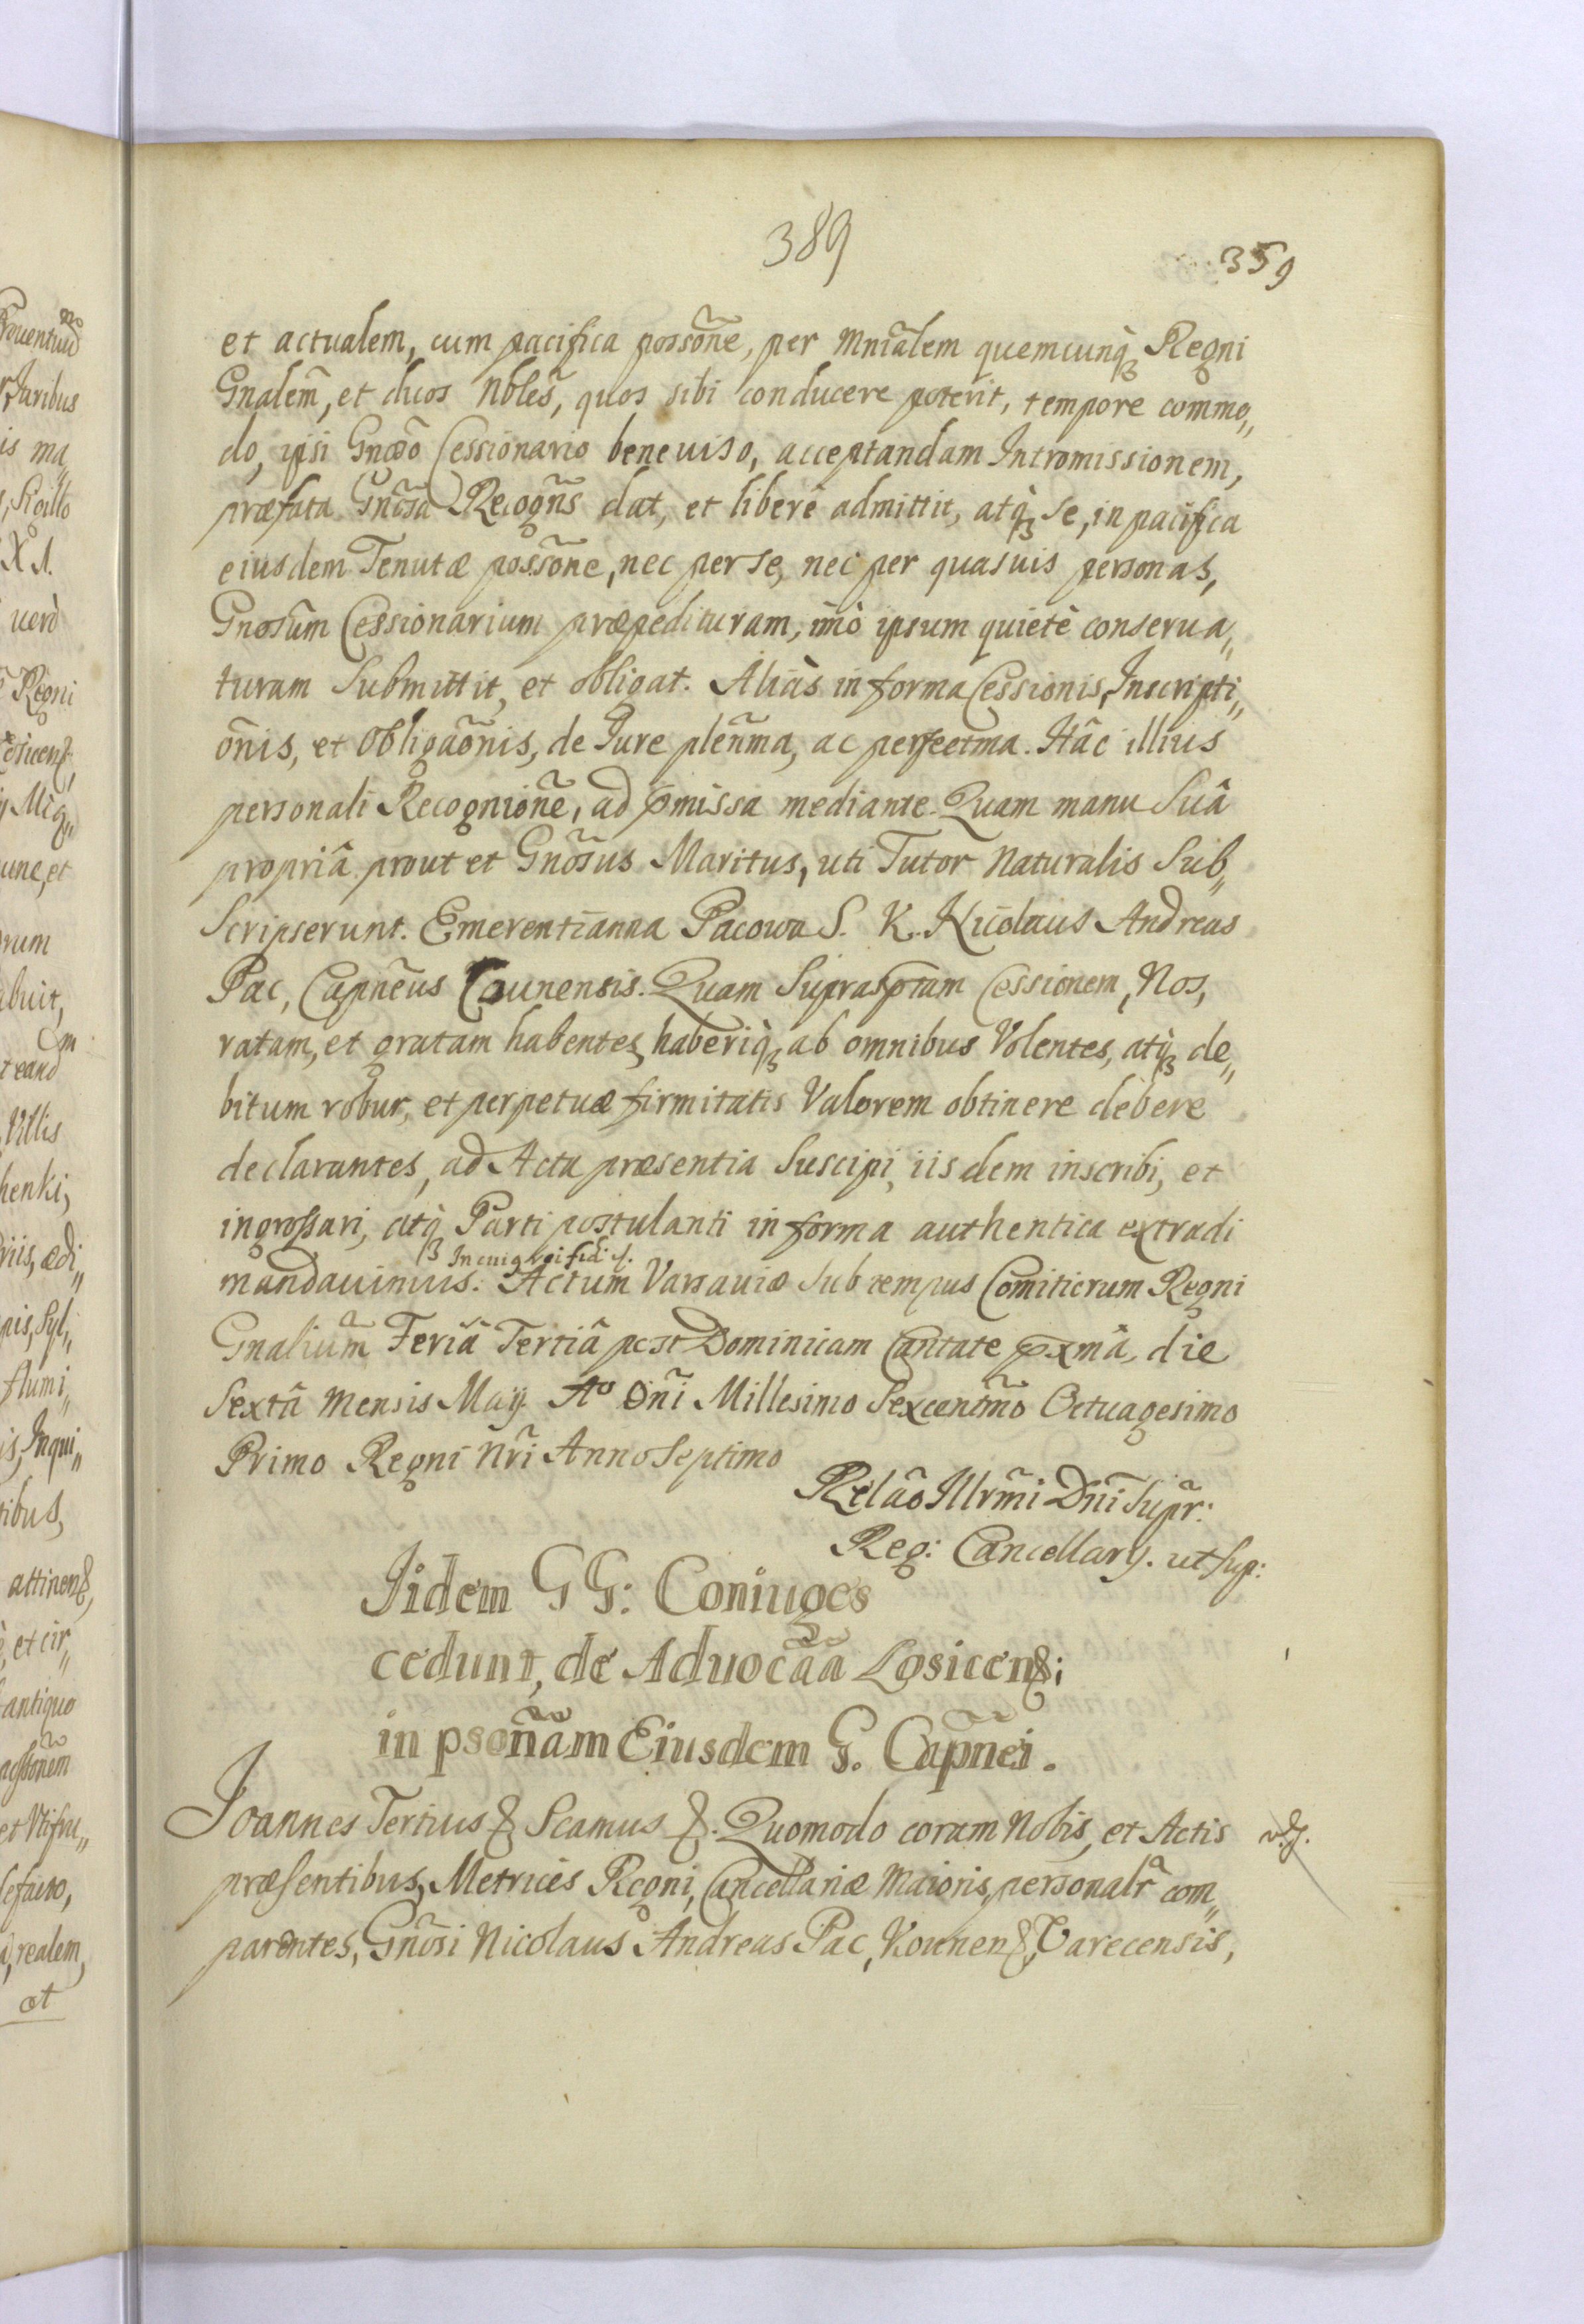 389
359
et actualem, cum pacifica possõne, per Mniãlem quemcunq̀ Regni
Gnalem̃, et duos Nbles̃, quos sibi conducere poterit, tempore commo„
do, ipsi Gnõso Cessionario beneuiso, acceptandam Intromissionem,
præfata Gnõsa Recogñs dat, et liberè admittit, atq̀ se, in pacifica
eiusdem Tenutæ possõne, nec per se, nec per quasuis personas,
Gnosũm Cessionarium præpedituram, imò ipsum quietè conserua„
turam Submittit, et obligat. Aliàs in forma Cessionis, Inscripti„
õnis, et Obligaõnis, de Jure pleñma, ac perfectma. Hâc illius
personali Recognioñe, ad p̃missa mediante. Quam manu Suâ
propriâ prout et Gnõsus Maritus, uti Tutor Naturalis Sub„
Scripserunt. Emerentianna Pacowa S. K. Nicolaus Andreas
Pac, Capnẽus Caunensis. Quam Suprasptam Cessionem, Nos,
ratam, et gratam habentes, haberiq̀ ab omnibus Volentes, atq̀ de„
bitum robur, et perpetuæ firmitatis Valorem obtinere debere
declarantes, ad Acta præsentia Suscipi, iisdem inscribi, et
ingrossari, atq̀ Parti postulanti in forma authentica extradi
In cuiq rei fid
mandauimus. Actum Varsauiæ Sub tempus Comitiorum Regni
Gnaliũm Feriâ Tertiâ post Dominicam Cantate pxmâ, die
Sextâ Mensis Maÿ. Aº Dñi Millesimo Sexcentm̃o Octuagesimo
Primo Regni Nr̃i Anno Septimo
Relão Illrm̃i Dñi Supr̃:
Reg: Cancellarÿ. ut sup:
Jidem GG: Coniuges
cedunt, de Aduocãa Losicen&;
in psoñam Eiusdem G. Capñei.
Joannes Tertius & Scamus &. Quomodo coram Nobis, et Actis
præsentibus, Metrices Regni, Cancellariæ Maioris, personalr̃ com„
parentes, Gnõsi Nicolaus Andreas Pac, Kounen&, Varecensis,